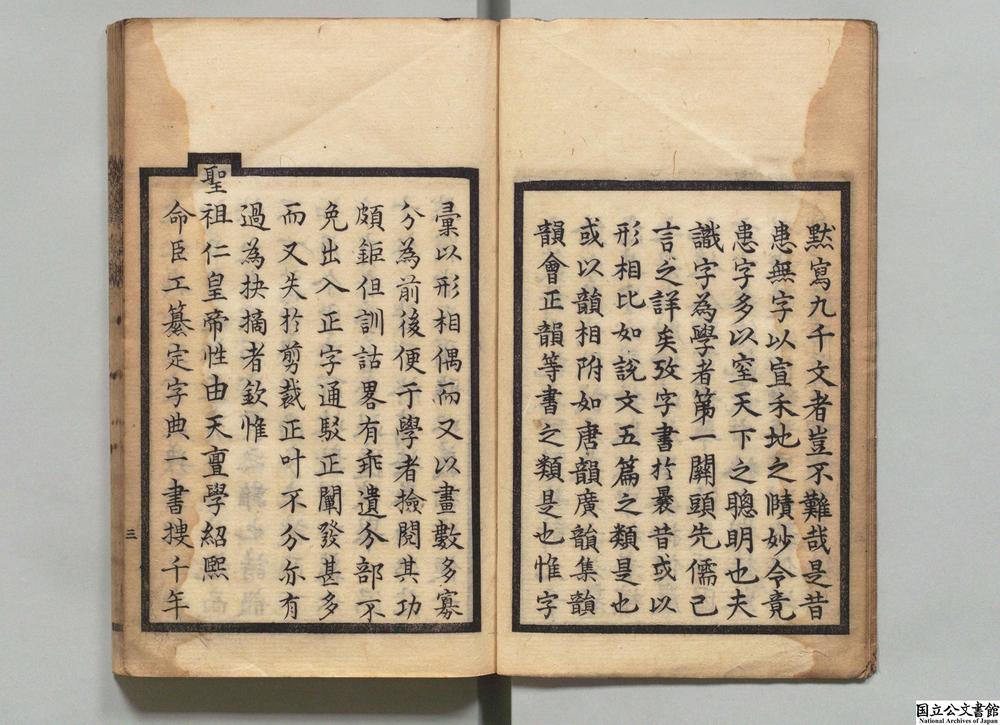 黙寫九千文者豈不難哉是昔
患無字以宣禾地之賾妙今竟
患字多以窒天下之聰明也夫
識字為學者第一關頭先儒已
言之詳矣攷字書於曩昔或以
形相比如說文五篇之類是也
或以韻相附如唐韻廣韻集韻
韻會正韻等書之類是也惟字
彙以形相偶而又以畫數多寡
分為前後便于學者撿閱其功
頗鉅但訓詁畧有乖遺分部不
免出入正字通駁正闡發甚多
而又失於剪裁正叶不分亦有
過為抉摘者欽惟
聖祖仁皇帝性由天亶學紹熙
命臣工纂定字典一書搜千年
三
国立公文書館
National Archives of Japan